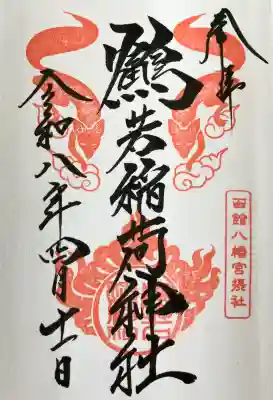 奉拝
函館八幡宮摂社
鶴若稲荷神社
令和八年四月十一日